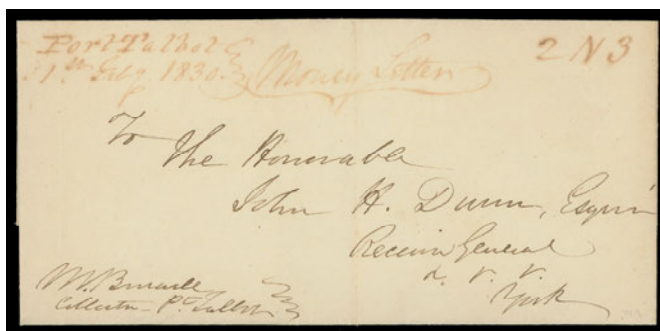 Port Talbot
1st July 1830. Money Letter
2 N 3
To
The Honorable
John H. Dunn, Esquire
Receiver General
York
M. Burwell
Collector Pt Talbot